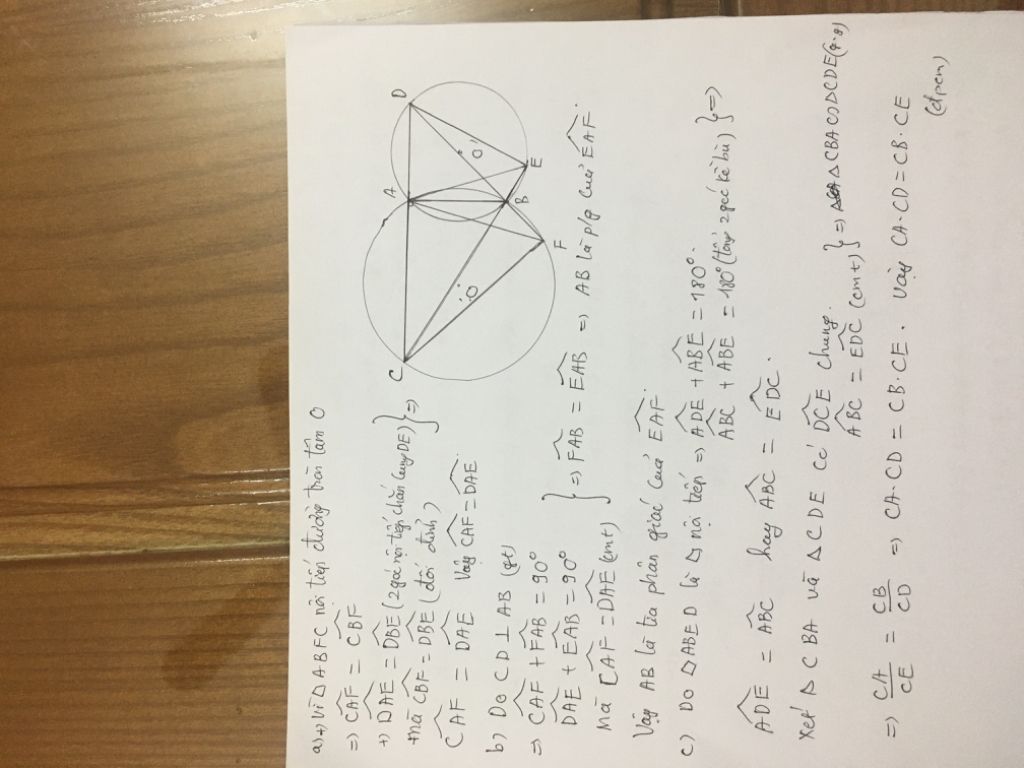 a) +) Vì ◁ ABFC nội tiếp đường tròn tâm O
=> CAF = CBF
+) DAE = DBE (2 góc nội tiếp chắn cung DE)
+ mà CBF = DBE (đối đỉnh) } =>
CAF = DAE Vậy CAF = DAE.
C
A
D
O
O'
B
E
F
b) Do CD ⊥ AB (gt)
=> CAF + FAB = 90°
DAE + EAB = 90°
Mà CAF = DAE (cmt) } => FAB = EAB => AB là p/g của EAF.
Vậy AB là tia phân giác của EAF.
c) Do ◁ ABED là ◁ nội tiếp => ADE + ABE = 180°.
ABC + ABE = 180° (tổng 2 góc kề bù) } =>
ADE = ABC hay ABC = EDC.
Xét △ CBA và △ CDE có DCE chung.
ABC = EDC (cmt) } => △CBA ∽ △CDE (g.g)
=> CA/CE = CB/CD => CA·CD = CB·CE. Vậy CA·CD = CB·CE
(đpcm)